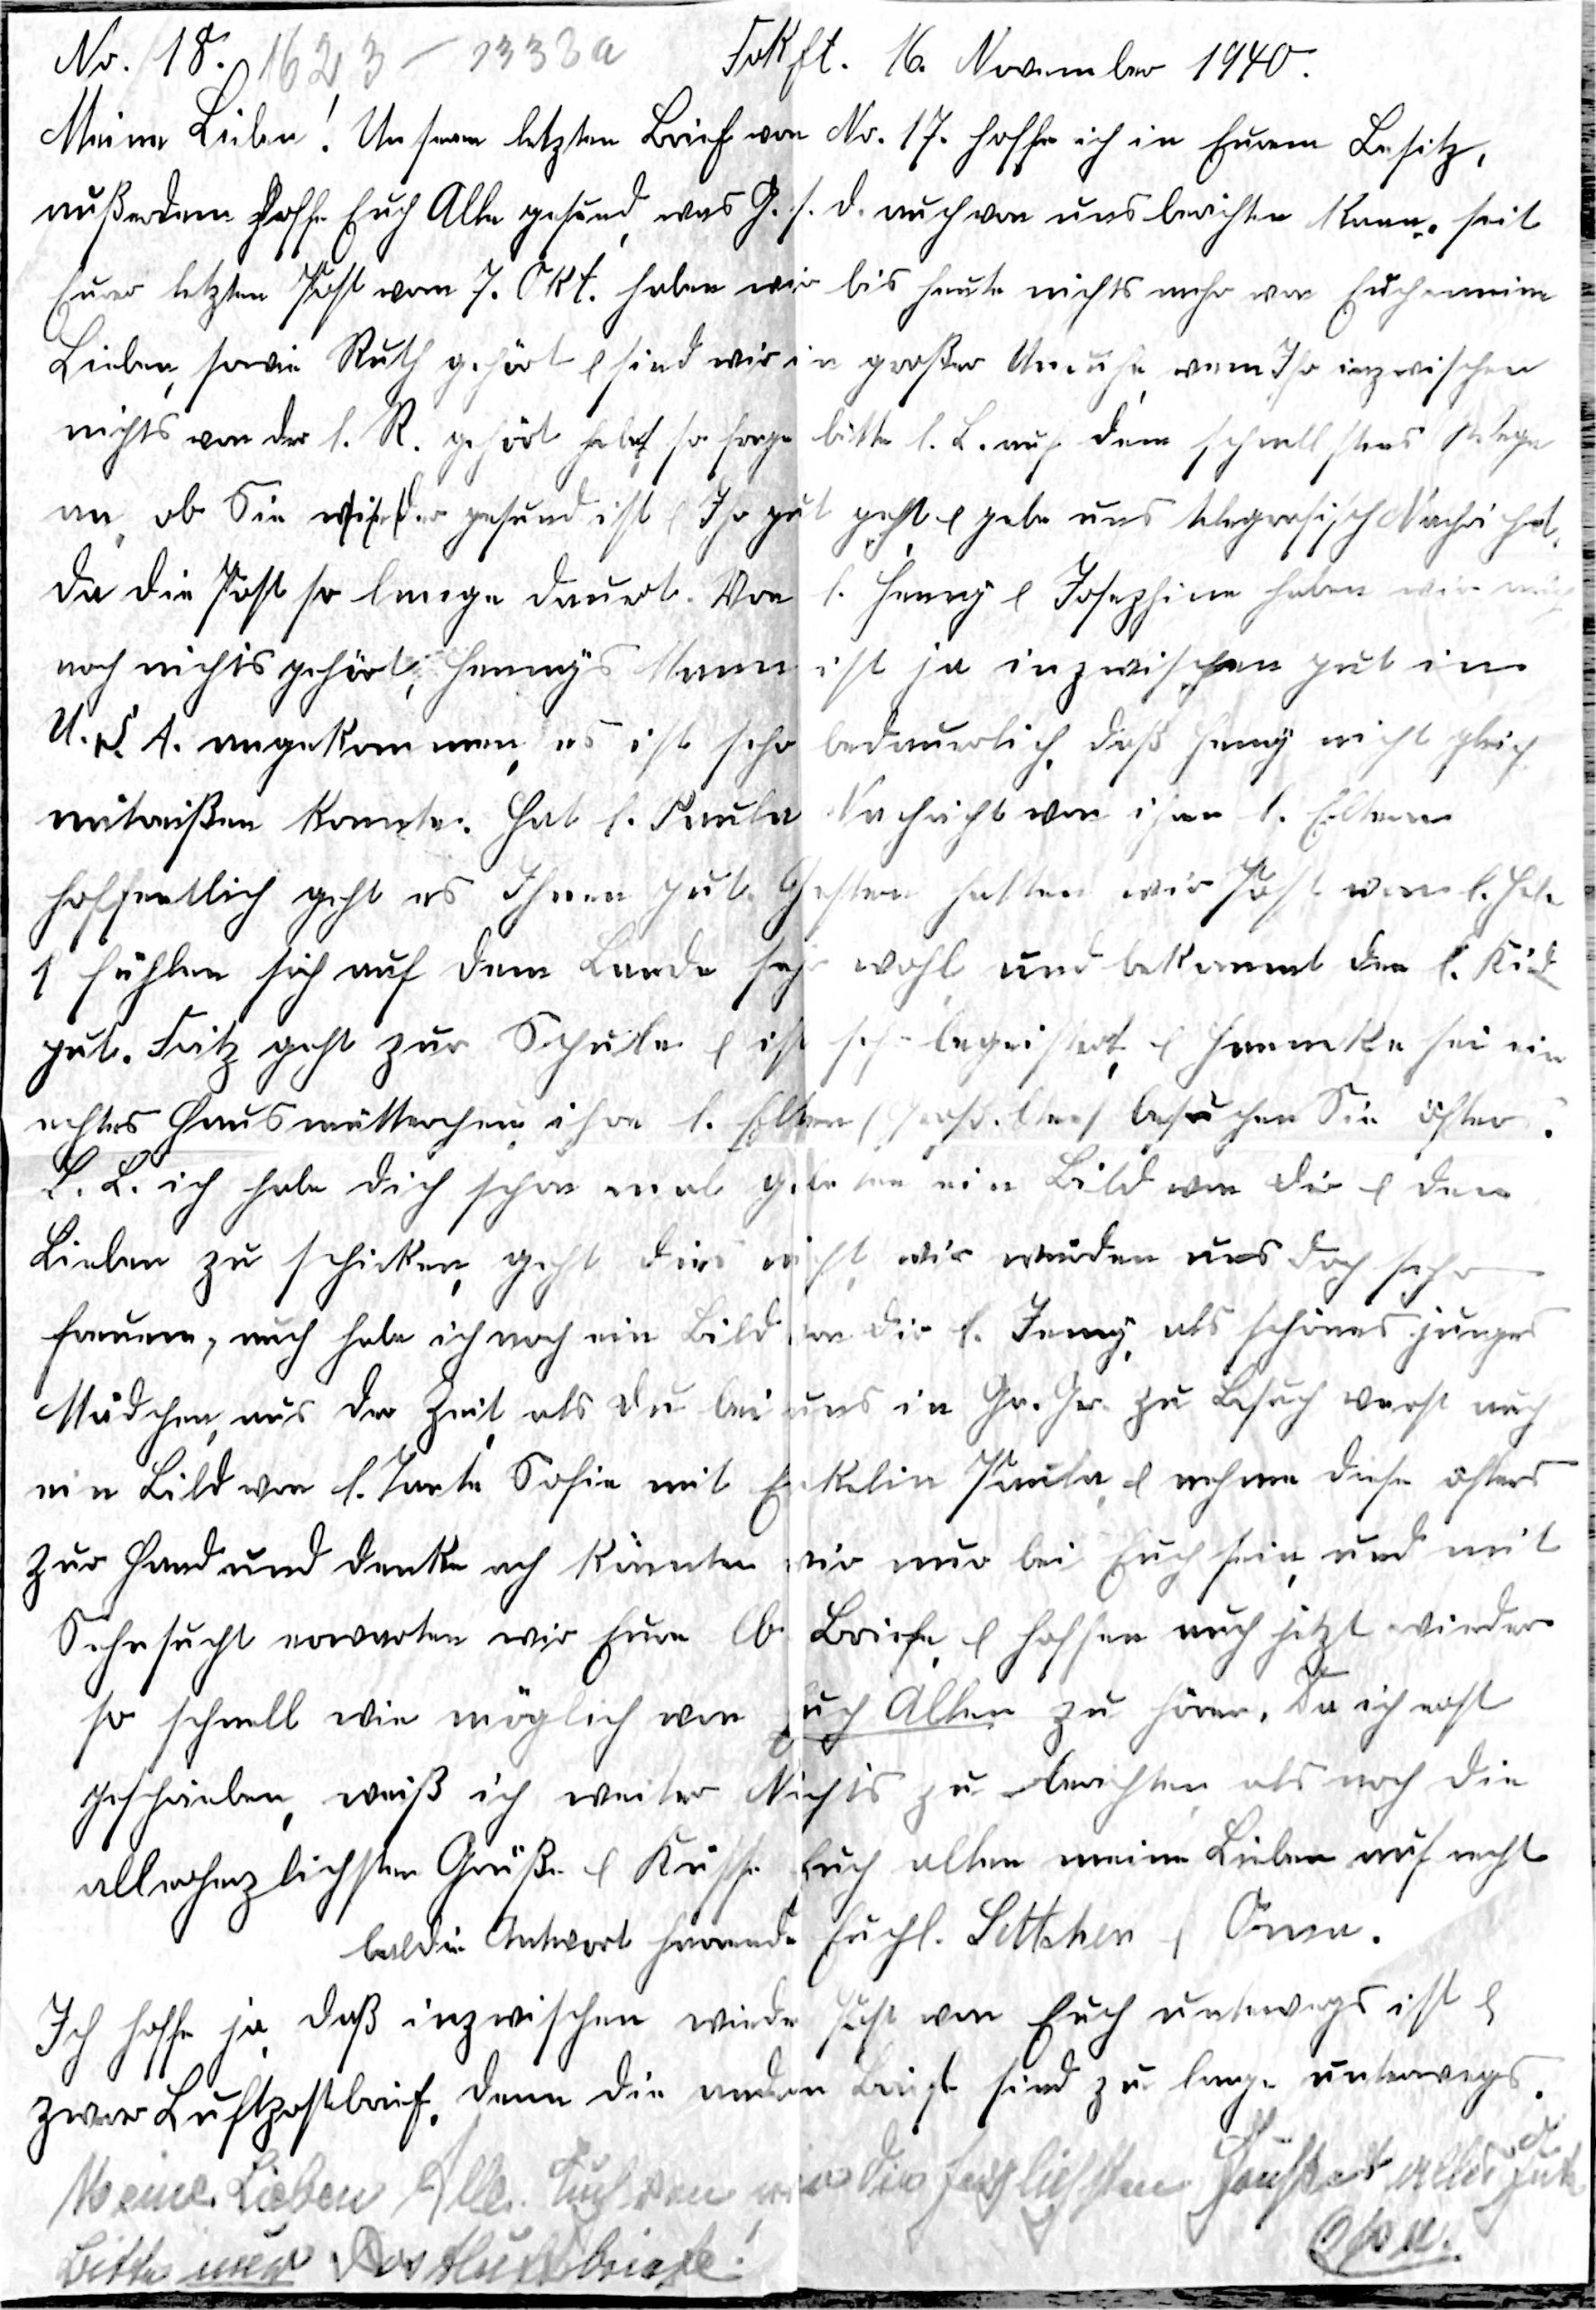 No. 18. 1623 – 1333a Frkft. 16. November 1940.
Meine Lieben! Unseren letzten Brief von No. 17. hoffe ich in Eurem Besitz,
außerdem hoffe Euch Alle gesund, was G. s. d. auch von uns berichten kann. seit
Eurer letzten Post vom 7. Okt. haben wir bis heute nichts mehr von Euch meine
Lieben, sowie Ruth gehört & sind wir in großer Unruhe, wenn Ihr inzwischen
nichts von der l. R. gehört habt, so frage bitte l. L. auf dem schnellstens
an, ob Sie wieder gesund ist & Ihr gut geht & gebe uns telegrafisch Nachricht,
da die Post so lange dauert. Von l. Henny & Josephine haben wir auch
noch nichts gehört, Hennys Mann ist ja inzwischen gut in
U. S. A. angekommen, es ist sehr bedauerlich, daß Henny nicht gleich
mitreißen konnte. Hat l. Paula Nachricht von ihren l. Eltern
hoffentlich geht es Ihnen gut. Gestern hatten wir Post von l.
& fühlen sich auf dem Lande sehr wohl, und bekommt den l. Kid
gut. Fritz geht zur Schule & ist sehr begeistert, & Hannche sei ein
echtes Hausmütterchen, ihre l. Eltern besuchen Sie öfters.
L. L. ich habe dich schon mal gebeten ein Bild von dir & den
Lieben zu schicken, geht dies nicht, wir würden uns doch sehr
freuen, auch habe ich noch ein Bild von dir l. Jenny, als schönes junges
Mädchen, aus der Zeit, als du bei uns in Gr. Ger. zu Besuch warst auch
ein Bild von l. Tante Sofie mit Enkelin Paula, & nehme diese öfters
zur Hand und denke ach könnten wir nur bei Euch sein, und mit
Sehnsucht erwarten wir Eure lb. Briefe, & hoffen auch jetzt wieder
so schnell wie möglich von Euch Allen zu hören. Da ich erst
geschrieben, weiß ich weiter Nichts zu berichten, als noch die
allerherzlichsten Grüße & Küsse Euch allen meine Lieben auf recht
baldie Antwort harrend Euch l. Settchen & Oma.
Ich hoffe ja, daß inzwischen wieder Post von Euch unterwegs ist &
zwar Luftpostbrief, denn die andern Briefe sind zu lange unterwegs.
Meine Lieben Alle. die herzlichsten
Bitte nur Postluftbriefe!